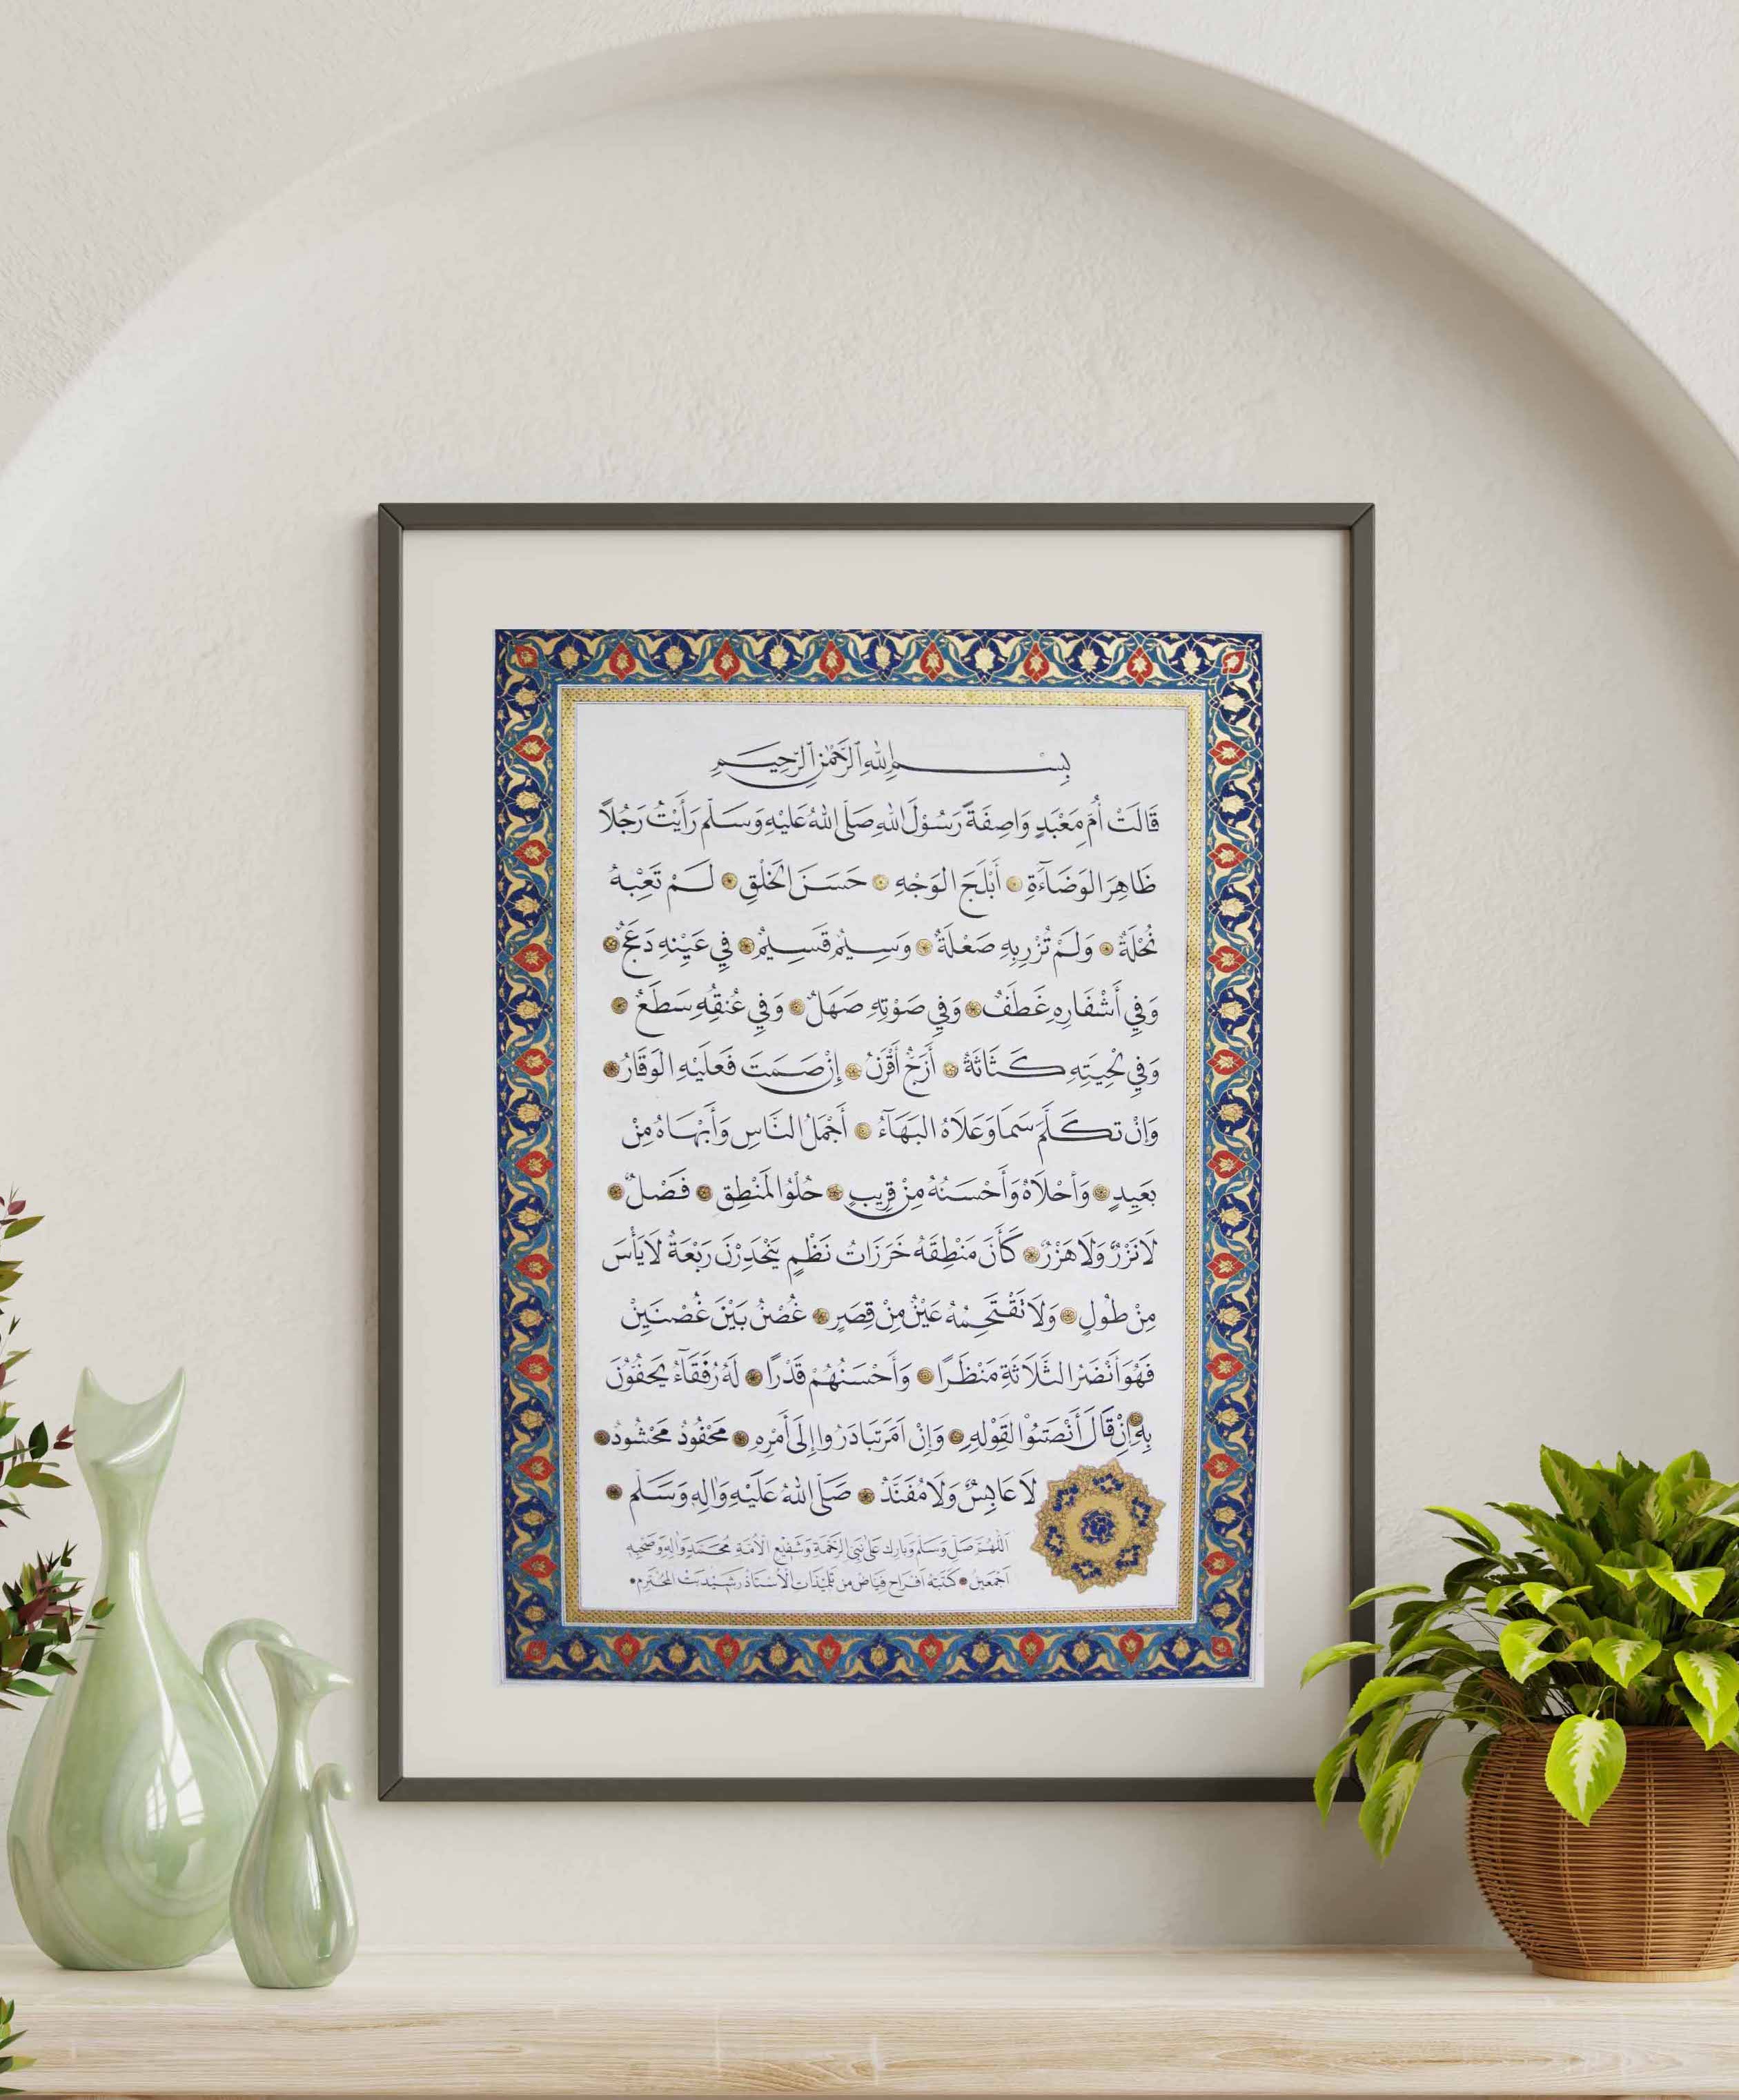 بِسْمِ اللهِ الرَّحْمٰنِ الرَّحِيمِ
قَالَتْ أُمُّ مَعْبَدٍ وَاصِفَةً رَسُوْلَ اللهِ صَلَّى اللهُ عَلَيْهِ وَسَلَّم رَأَيْتُ رَجُلاً
ظَاهِرَ الوَضَآءَةِ أَبْلَجَ الوَجْهِ حَسَنَ الخَلْقِ لَمْ تَعِبْهُ
نُحْلَةٌ وَلَمْ تُزْرِ بِهِ صَعْلَةٌ وَسِيْمٌ قَسِيْمٌ فِي عَيْنِهِ دَعَجٌ
وَفِي أَشْفَارِهِ غَطَفٌ وَفِي صَوْتِهِ صَهَلٌ وَفِي عُنُقِهِ سَطَعٌ
وَفِي لِحْيَتِهِ كَثَاثَةٌ أَزَجُّ أَقْرَنُ إِنْ صَمَتَ فَعَلَيْهِ الوَقَارُ
وَإِنْ تَكَلَّمَ سَمَا وَعَلَاهُ البَهَآءُ أَجْمَلُ النَّاسِ وَأَبْهَاهُ مِنْ
بَعِيدٍ وَأَحْلَاهُ وَأَحْسَنُهُ مِنْ قَرِيبٍ حُلْوُ المَنْطِقِ فَصْلٌ
لَا نَزْرٌ وَلَا هَزْرٌ كَأَنَّ مَنْطِقَهُ خَرَزَاتُ نَظْمٍ يَنْحَدِرْنَ رَبْعَةٌ لَا يَأْسَ
مِنْ طُولٍ وَلَا تَقْتَحِمُهُ عَيْنٌ مِنْ قِصَرٍ غُصْنٌ بَيْنَ غُصْنَيْنِ
فَهُوَ أَنْضَرُ الثَّلَاثَةِ مَنْظَرًا وَأَحْسَنُهُمْ قَدْرًا لَهُ رُفَقَاءُ يَحُفُّوْنَ
بِهِ إِنْ قَالَ أَنْصَتُوْا لِقَوْلِهِ وَإِنْ أَمَرَ تَبَادَرُوا إِلَى أَمْرِهِ مَحْفُوْدٌ مَحْشُودٌ
لَا عَابِسٌ وَلَا مُفَنَّدٌ صَلَّى اللهُ عَلَيْهِ وَآلِهِ وَسَلَّم
اَللّٰهُمَّ صَلِّ وَسَلِّمْ وَبَارِك عَلَى نَبِيِّ الرَّحْمَةِ وَشَفِيْعِ الْاُمَّةِ مُحَمَّدٍ وَاٰلِهِ وَصَحْبِهِ
اَجْمَعِيْنَ كَتَبَهُ اَفْرَاح فَيَّاض مِنْ تِلْمِيْذَاتِ الْاُسْتَاذ رَشِيْد بَتْ الْمُحْتَرَم